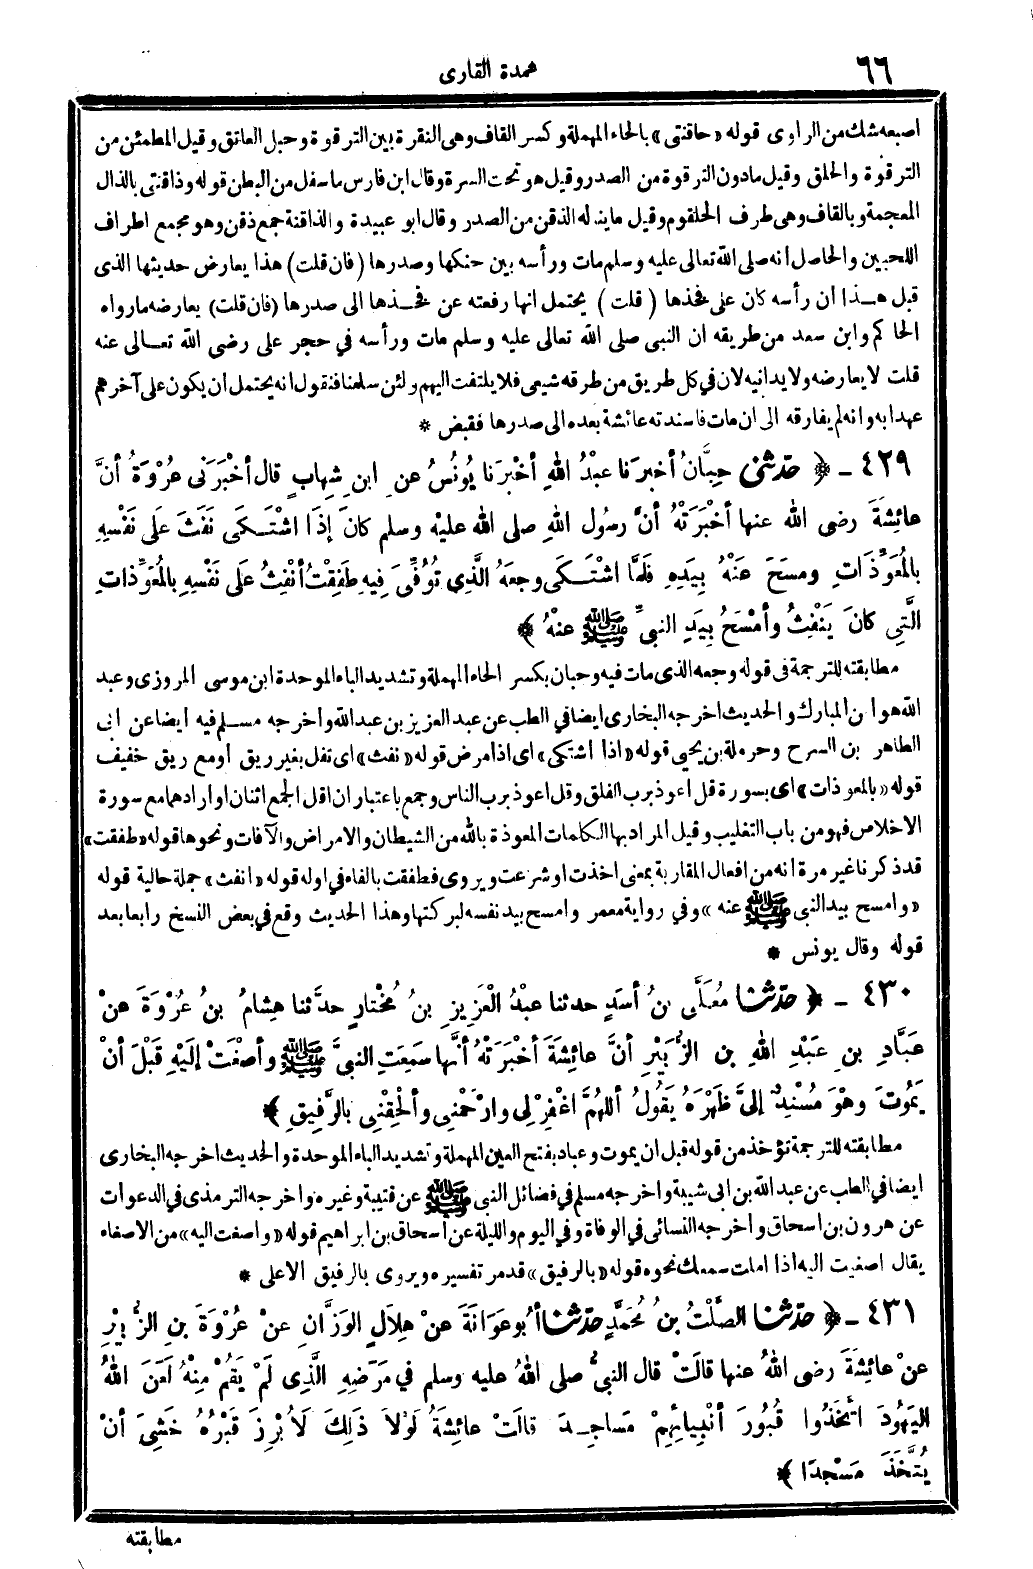 ٦٦
عمدة القارى
اصبعه شك من الراوى قوله «حاقنتى» بالحاء المهملة وكسر القاف وهى النقرة بين الترقوة وحبل العاتق وقيل المطمئن من
الترقوة والحلق وقيل مادون الترقوة من الصدر وقيل هو تحت السرة وقال ابن فارس ما سفل من البطن قوله وذاقنتى بالذال
المعجمة وبالقاف وهى طرف الحلقوم وقيل ما يناله الذقن من الصدر وقال ابو عبيدة والذاقنة جمع ذقن وهو مجمع اطراف
اللحيين والحاصل انه صلى الله تعالى عليه وسلم مات ورأسه بين حنكها وصدرها (فان قلت) هذا يعارض حديثها الذى
قبل هذا ان رأسه كان على فخذها (قلت) يحتمل انها رفعته عن فخذها الى صدرها (فان قلت) يعارضه مارواه
الحاكم وابن سعد من طريقه ان النبى صلى الله تعالى عليه وسلم مات ورأسه في حجر على رضى الله تعالى عنه
قلت لا يعارضه ولا يدانيه لان في كل طريق من طرقه شيعى فلا يلتفت اليهم ولئن سلمنا فنقول انه يحتمل ان يكون على آخرهم
عهدا به وانه لم يفارقه الى ان مات فاسندته عائشة بعده الى صدرها فقبض *
٤٢٩ - ﴿ حدّثنى حِبَّانُ أخبرَنا عبْدُ اللهِ أخْبرَنا يُونُسُ عن ابنِ شِهابٍ قال أخْبَرَنى عُرْوَةُ أنَّ
عائِشَةَ رضى الله عنها أخْبَرَتْهُ أنَّ رسُول اللهِ صلى الله عليْه وسلم كانَ إذَا اشْتَكَى نَفَثَ عَلَى نَفْسِهِ
بالْمُعَوِّذَاتِ ومسَحَ عَنْهُ بِيَدِهِ فَلَمَّا اشْتَكَى وجعَهُ الَّذِى تُوُفِّىَ فِيهِ طَفِقْتُ أنْفِثُ عَلَى نَفْسِهِ بالْمُعَوِّذاتِ
الَّتِى كانَ يَنْفِثُ وأمْسَحُ بِيَدِ النبىِّ ﷺ عنْهُ ﴾
مطابقته للترجمة فى قوله وجعه الذى مات فيه وحبان بكسر الحاء المهملة وتشديد الباء الموحدة ابن موسى المروزى وعبد
الله هو ابن المبارك والحديث اخرجه البخارى ايضا في الطب عن عبد العزيز بن عبد الله واخرجه مسلم فيه ايضا عن ابى
الطاهر بن السرح وحرملة بن يحيى قوله «اذا اشتكى» اى اذا مرض قوله «نفث» اى تفل بغير ريق أو مع ريق خفيف
قوله «بالمعوذات» اى بسورة قل اعوذ برب الفلق وقل اعوذ برب الناس وجمع باعتبار ان اقل الجمع اثنان او ارادهما مع سورة
الاخلاص فهو من باب التغليب وقيل المراد بها الكلمات المعوذة بالله من الشيطان والامراض والآفات ونحوها قوله «طفقت»
قد ذكرنا غير مرة انه من افعال المقاربة بمعنى اخذت او شرعت ويروى فطفقت بالفاء في اوله قوله «انفث» جملة حالية قوله
«وامسح بيد النبى ﷺ عنه» وفي رواية معمر وامسح بيد نفسه لبركتها وهذا الحديث وقع في بعض النسخ رابعا بعد
قوله وقال يونس *
٤٣٠ - ﴿ حدّثنا مُعَلَّى بنُ أسَدٍ حدثنا عبْدُ الْعَزِيزِ بنُ مُخْتارٍ حدَّثنا هِشامُ بنُ عُرْوَةَ عنْ
عَبَّادِ بنِ عبْدِ اللهِ بنِ الزُّبَيْرِ أنَّ عائِشَةَ أخْبَرَتْهُ أنَّها سَمِعَتِ النبىَّ ﷺ وأصْغَتْ إلَيْهِ قَبْلَ أنْ
يَمُوتَ وهْوَ مُسْنِدٌ إلىَّ ظَهْرَهُ يَقُولُ أللهُمَّ اغْفِرْ لِى وارْحَمْنِى وألْحِقْنِى بالرَّفِيقِ ﴾
مطابقته للترجمة تؤخذ من قوله قبل ان يموت وعباد بفتح العين المهملة وتشديد الباء الموحدة والحديث اخرجه البخارى
ايضا في الطب عن عبد الله بن ابى شيبة واخرجه مسلم في فضائل النبى ﷺ عن قتيبة وغيره واخرجه الترمذى في الدعوات
عن هرون بن اسحاق واخرجه النسائى في الوفاة وفي اليوم والليلة عن اسحاق بن ابراهيم قوله «واصغت اليه» من الاصغاء
يقال اصغيت اليه اذا املت سمعك نحوه قوله «بالرفيق» قد مر تفسيره ويروى بالرفيق الاعلى *
٤٣١ - ﴿ حدّثنا الصَّلْتُ بنُ مُحَمَّدٍ حدّثنا أبُو عَوَانَةَ عنْ هِلالٍ الوَزَّانِ عنْ عُرْوَةَ بنِ الزُّبَيْرِ
عنْ عائِشَةَ رضى اللهُ عنها قالَتْ قال النبىُّ صلى اللهُ عليه وسلم في مَرَضِهِ الَّذِى لَمْ يَقُمْ مِنْهُ لَعَنَ اللهُ
اليَهُودَ اتَّخَذُوا قُبُورَ أنْبِيائِهِمْ مَساجِدَ قالَتْ عائِشَةُ لَوْلاَ ذَلِكَ لَأُبْرِزَ قَبْرُهُ خَشِىَ أنْ
يُتَّخَذَ مَسْجِدًا ﴾
مطابقته